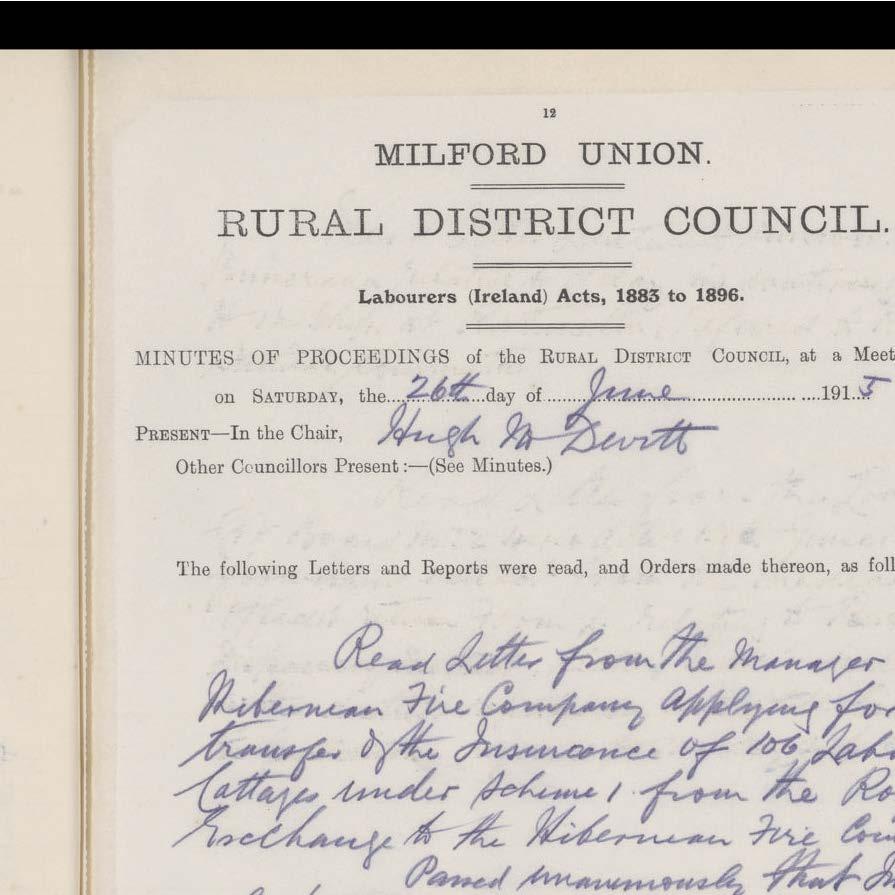 12
MILFORD UNION.
RURAL DISTRICT COUNCIL.
Labourers (Ireland) Acts, 1883 to 1896.
MINUTES OF PROCEEDINGS of the RURAL DISTRICT COUNCIL, at a Meet
on SATURDAY, the....26th....day of........June..........................191..5
PRESENT—In the Chair, Hugh McDevitt
Other Councillors Present:—(See Minutes.)
The following Letters and Reports were read, and Orders made thereon, as foll
Read Letter from the Manager
Hibernean Fire Company applying for
transfer of the Insurance of 106 Labo
Cottages under Scheme 1 from the Ro
Exchange to the Hibernean Fire Com
Passed unanimously that